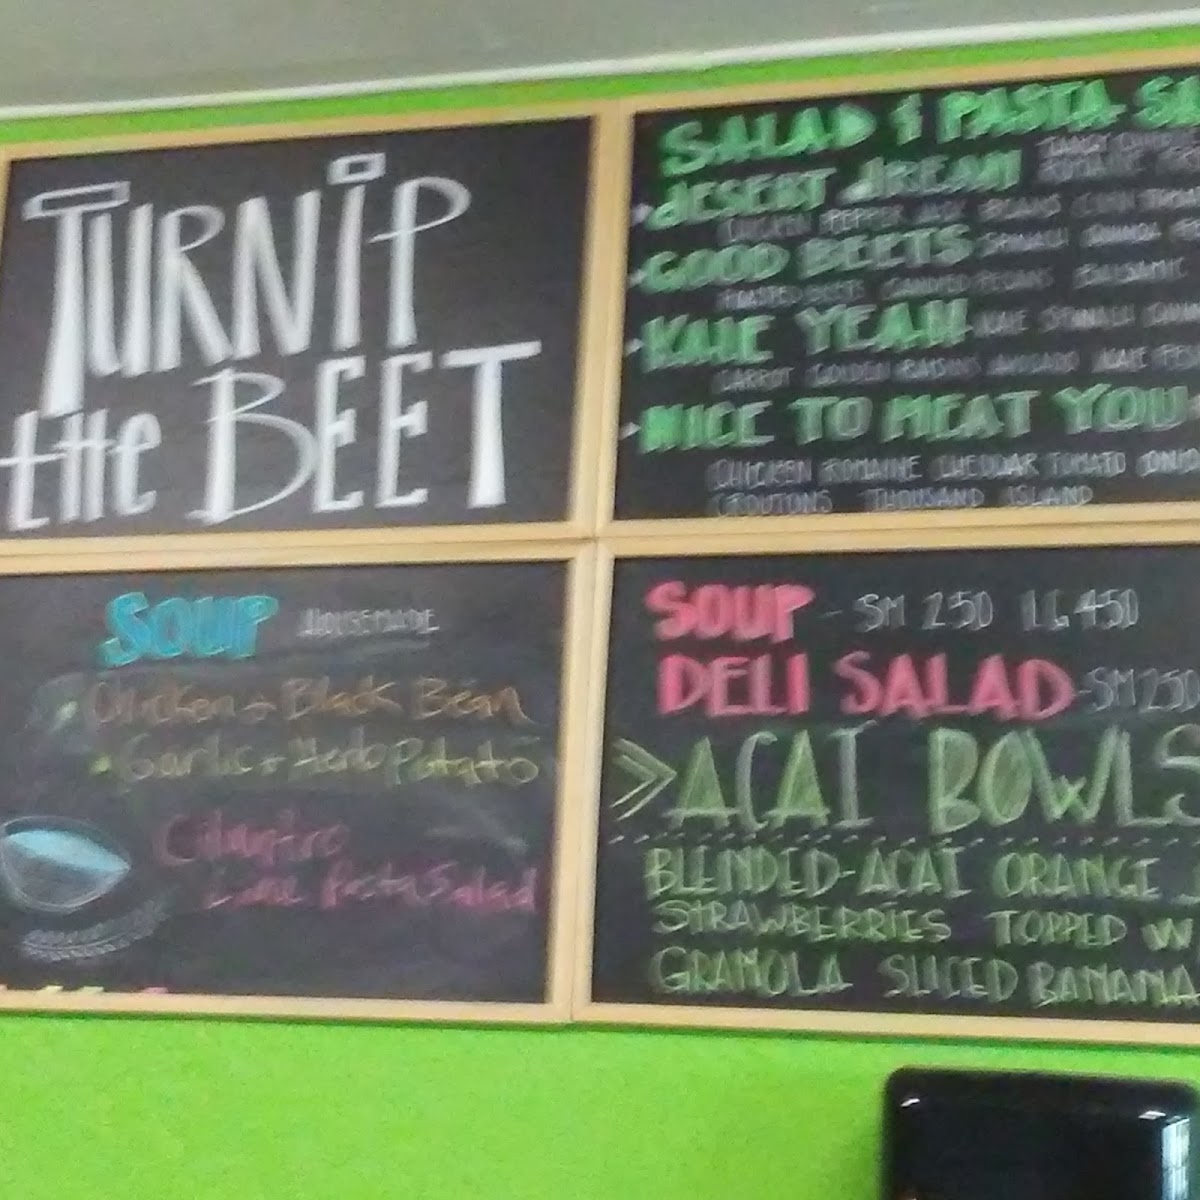 TURNIP
the BEET
SALAD & PASTA SA
DESERT DREAM
CHICKEN PEPPER JACK BEANS CORN
GOOD BEETS SPINACH QUINOA
ROASTED BEETS CANDIED PECANS BALSAMIC
KALE YEAH KALE SPINACH
CARROT GOLDEN RAISINS AVOCADO
NICE TO MEAT YOU
CHICKEN ROMAINE CHEDDAR TOMATO ONIO
CROUTONS THOUSAND ISLAND
SOUP HOUSEMADE
Chicken + Black Bean
Garlic + Herb Potato
Cilantro
Lime Pasta Salad
SOUP - SM 250 LG 450
DELI SALAD - SM 250
> ACAI BOWLS
BLENDED-ACAI ORANGE
STRAWBERRIES TOPPED W
GRANOLA SLICED BANANA